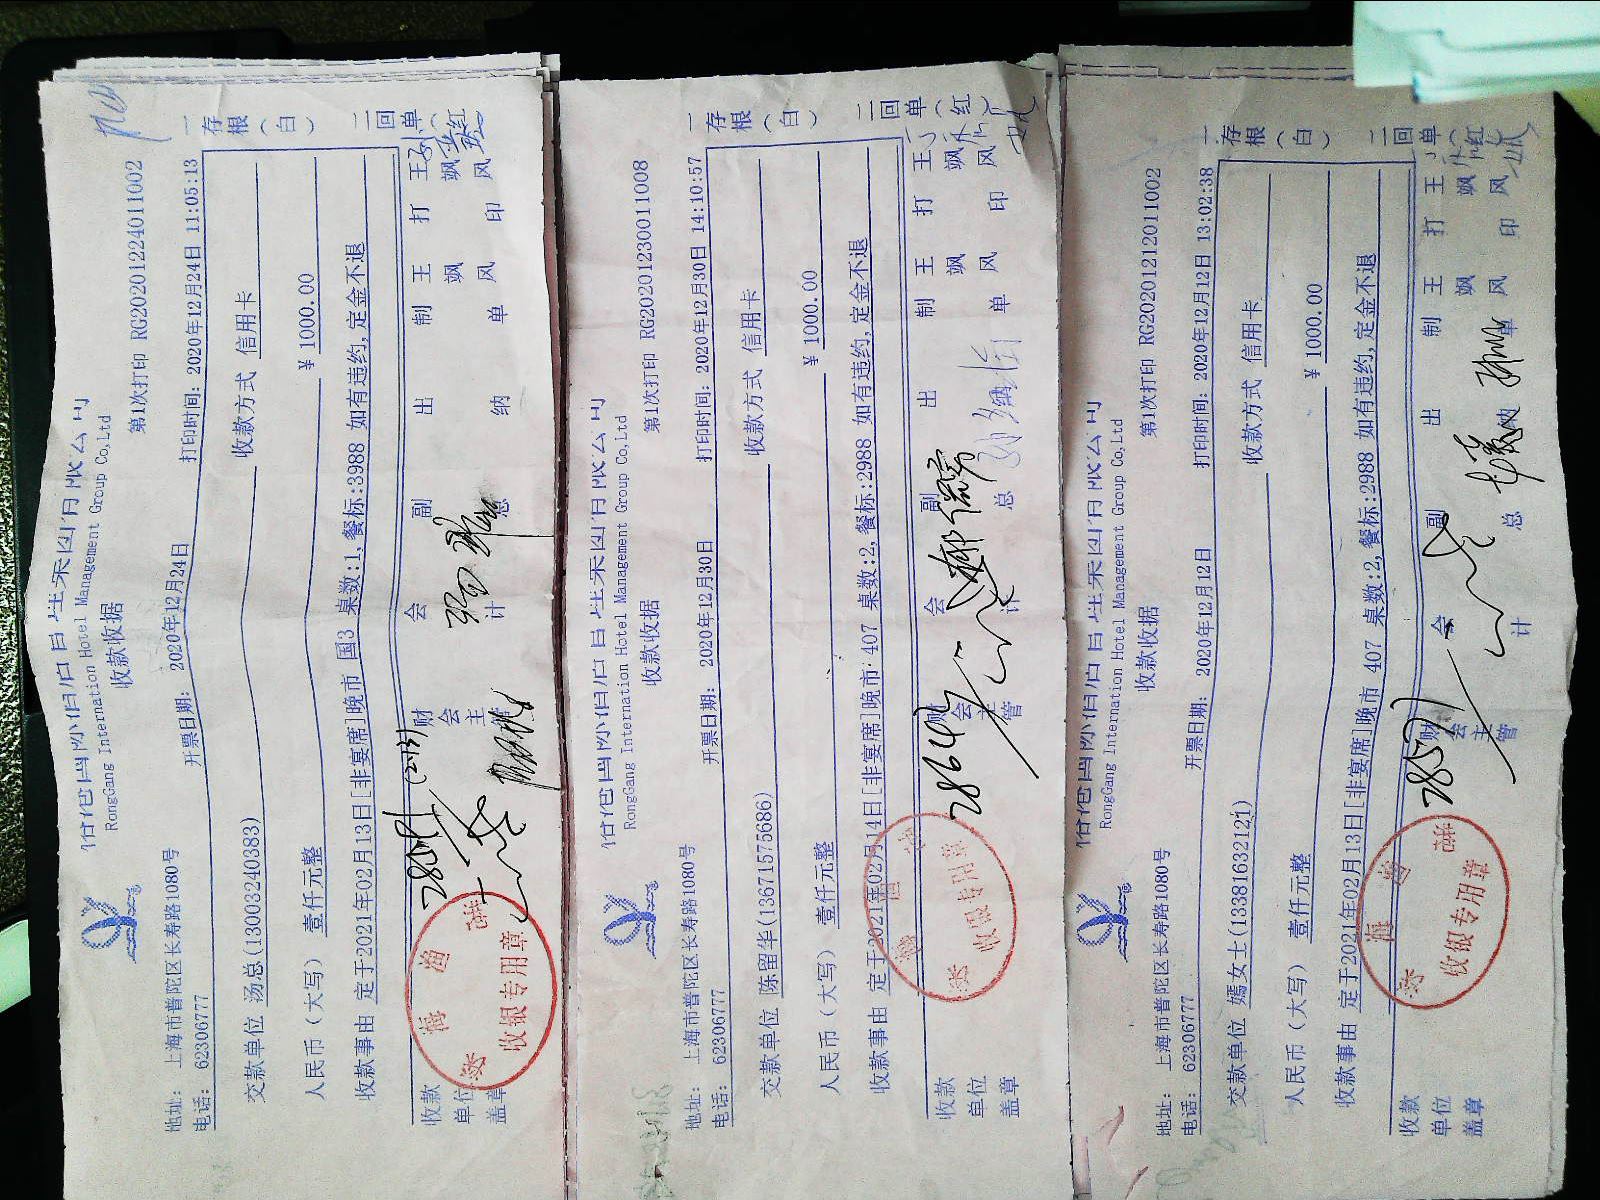 RongGang International Hotel Management Group Co,Ltd
收款收据
第1次打印 RG20201224011002
地址： 上海市普陀区长寿路1080号
电话： 62306777
开票日期： 2020年12月24日
打印时间: 2020年12月24日 11:05:13
交款单位 汤总(13003240383)
收款方式 信用卡
人民币（大写） 壹仟元整
¥ 1000.00
收款事由 定于2021年02月13日[非宴席]晚市 国3 桌数:1,餐标:3988 如有违约,定金不退
收款单位盖章
财会主管
会计
副总
出纳
制单 王飒风
打印 王飒风
一存根（白） 二回单（红）
收银专用章
RongGang International Hotel Management Group Co,Ltd
收款收据
第1次打印 RG20201230011008
地址： 上海市普陀区长寿路1080号
电话： 62306777
开票日期： 2020年12月30日
打印时间: 2020年12月30日 14:10:57
交款单位 陈留华(13671575686)
收款方式 信用卡
人民币（大写） 壹仟元整
¥ 1000.00
收款事由 定于2021年02月14日[非宴席]晚市 407 桌数:2,餐标:2988 如有违约,定金不退
收款单位盖章
财会主管
会计
副总
出
制单 王飒风
打印 王飒风
一存根（白） 二回单（红）
28647
收银专用章
RongGang International Hotel Management Group Co,Ltd
收款收据
第1次打印 RG20201212011002
地址： 上海市普陀区长寿路1080号
电话： 62306777
开票日期： 2020年12月12日
打印时间: 2020年12月12日 13:02:38
交款单位 嫣女士(13381632121)
收款方式 信用卡
人民币（大写） 壹仟元整
¥ 1000.00
收款事由 定于2021年02月13日[非宴席]晚市 407 桌数:2,餐标:2988 如有违约,定金不退
收款单位盖章
财会主管
会计
副总
出纳
制单 王飒风
打印 王飒风
一存根（白） 二回单（红）
收银专用章